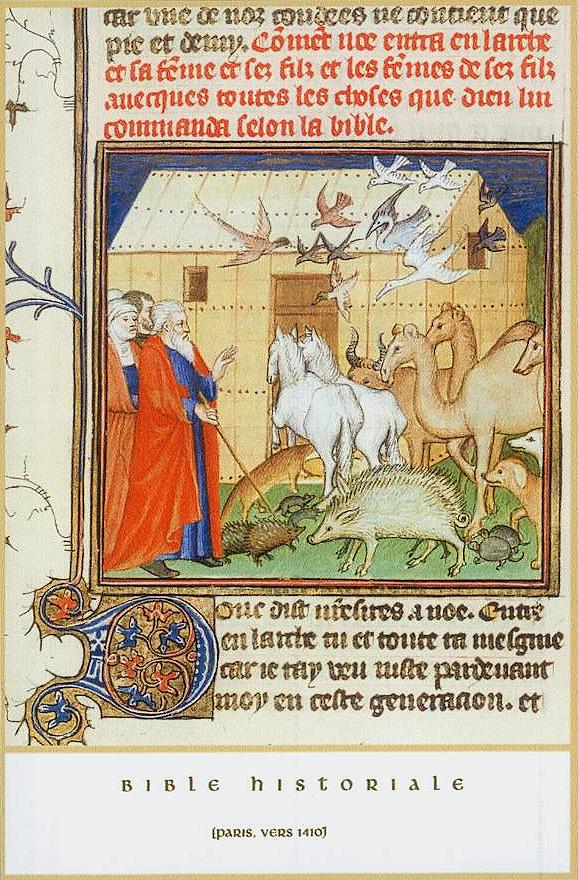 car vne de noz coudees ne contient que
pie et demy. Cōmēt noe entra en larche
et sa fēme et sez filz et les fēmes de sez filz
auecques toutes les choses que dieu lui
commanda selon la bible.
Ouc dist nr̄esires a noe. Entre
en larche tu et toute ta mesgnie
car ie tay veu iuste pardeuant
moy en ceste generacion. et
BIBLE HISTORIALE
(PARIS, VERS 1410)